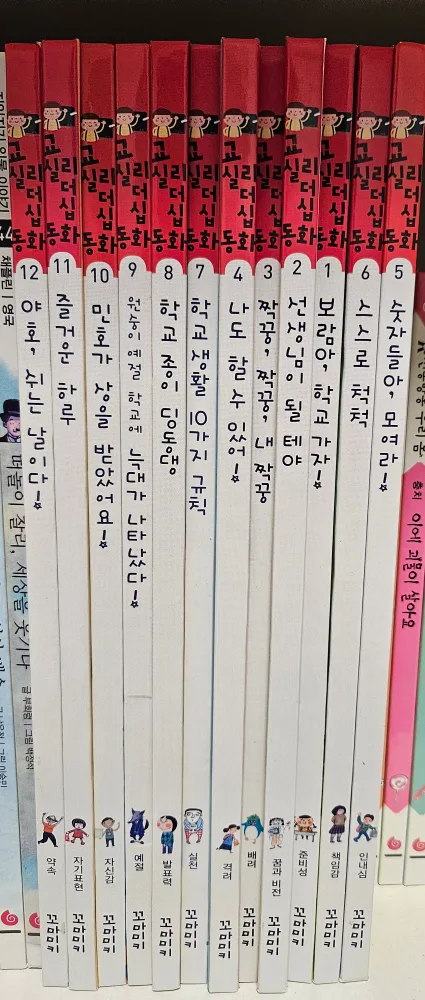 44
채플린 | 영국
떠돌이 찰리, 세상을 웃기다
교실 리더십 동화
12
야호, 쉬는 날이다!
약속
꼬마미키
교실 리더십 동화
11
즐거운 하루
자기표현
꼬마미키
교실 리더십 동화
10
민호가 상을 받았어요!
자신감
꼬마미키
교실 리더십 동화
9
원중이 예절 학교에 늑대가 나타났다!
예절
꼬마미키
교실 리더십 동화
8
학교 종이 딩동댕
발표력
꼬마미키
교실 리더십 동화
7
학교생활 10가지 규칙
실천
꼬마미키
교실 리더십 동화
4
나도 할 수 있어!
격려
꼬마미키
교실 리더십 동화
3
짝꿍, 짝꿍, 내 짝꿍
배려
꼬마미키
교실 리더십 동화
2
선생님이 될 테야
꿈과 비전
꼬마미키
교실 리더십 동화
1
보람아, 학교 가자!
준비성
꼬마미키
교실 리더십 동화
6
스스로 척척
책임감
꼬마미키
교실 리더십 동화
5
숫자들아, 모여라!
인내심
꼬마미키
충치 이에 괴물이 살아요